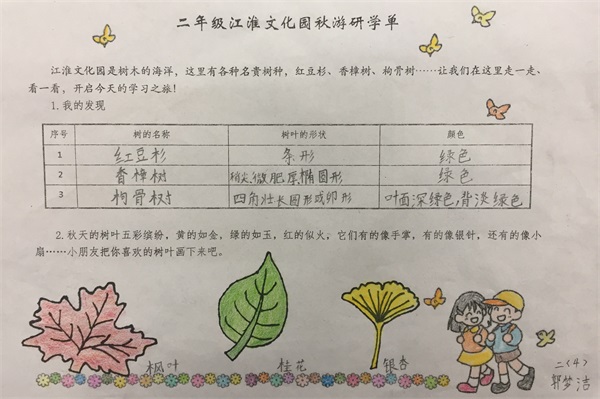 二年级江淮文化园秋游研学单
江淮文化园是树木的海洋，这里有各种名贵树种，红豆杉、香樟树、枸骨树……让我们在这里走一走、
看一看，开启今天的学习之旅！
1.我的发现
序号 树的名称 树叶的形状 颜色
1 红豆杉 条形 绿色
2 香樟树 稍尖、微肥厚、椭圆形 绿色
3 枸骨树 四角壮长圆形或卵形 叶面深绿色，背淡绿色
2.秋天的树叶五彩缤纷，黄的如金，绿的如玉，红的似火，它们有的像手掌，有的像银针，还有的像小
扇……小朋友把你喜欢的树叶画下来吧。
枫叶 桂花 银杏
二（4）
郭梦洁